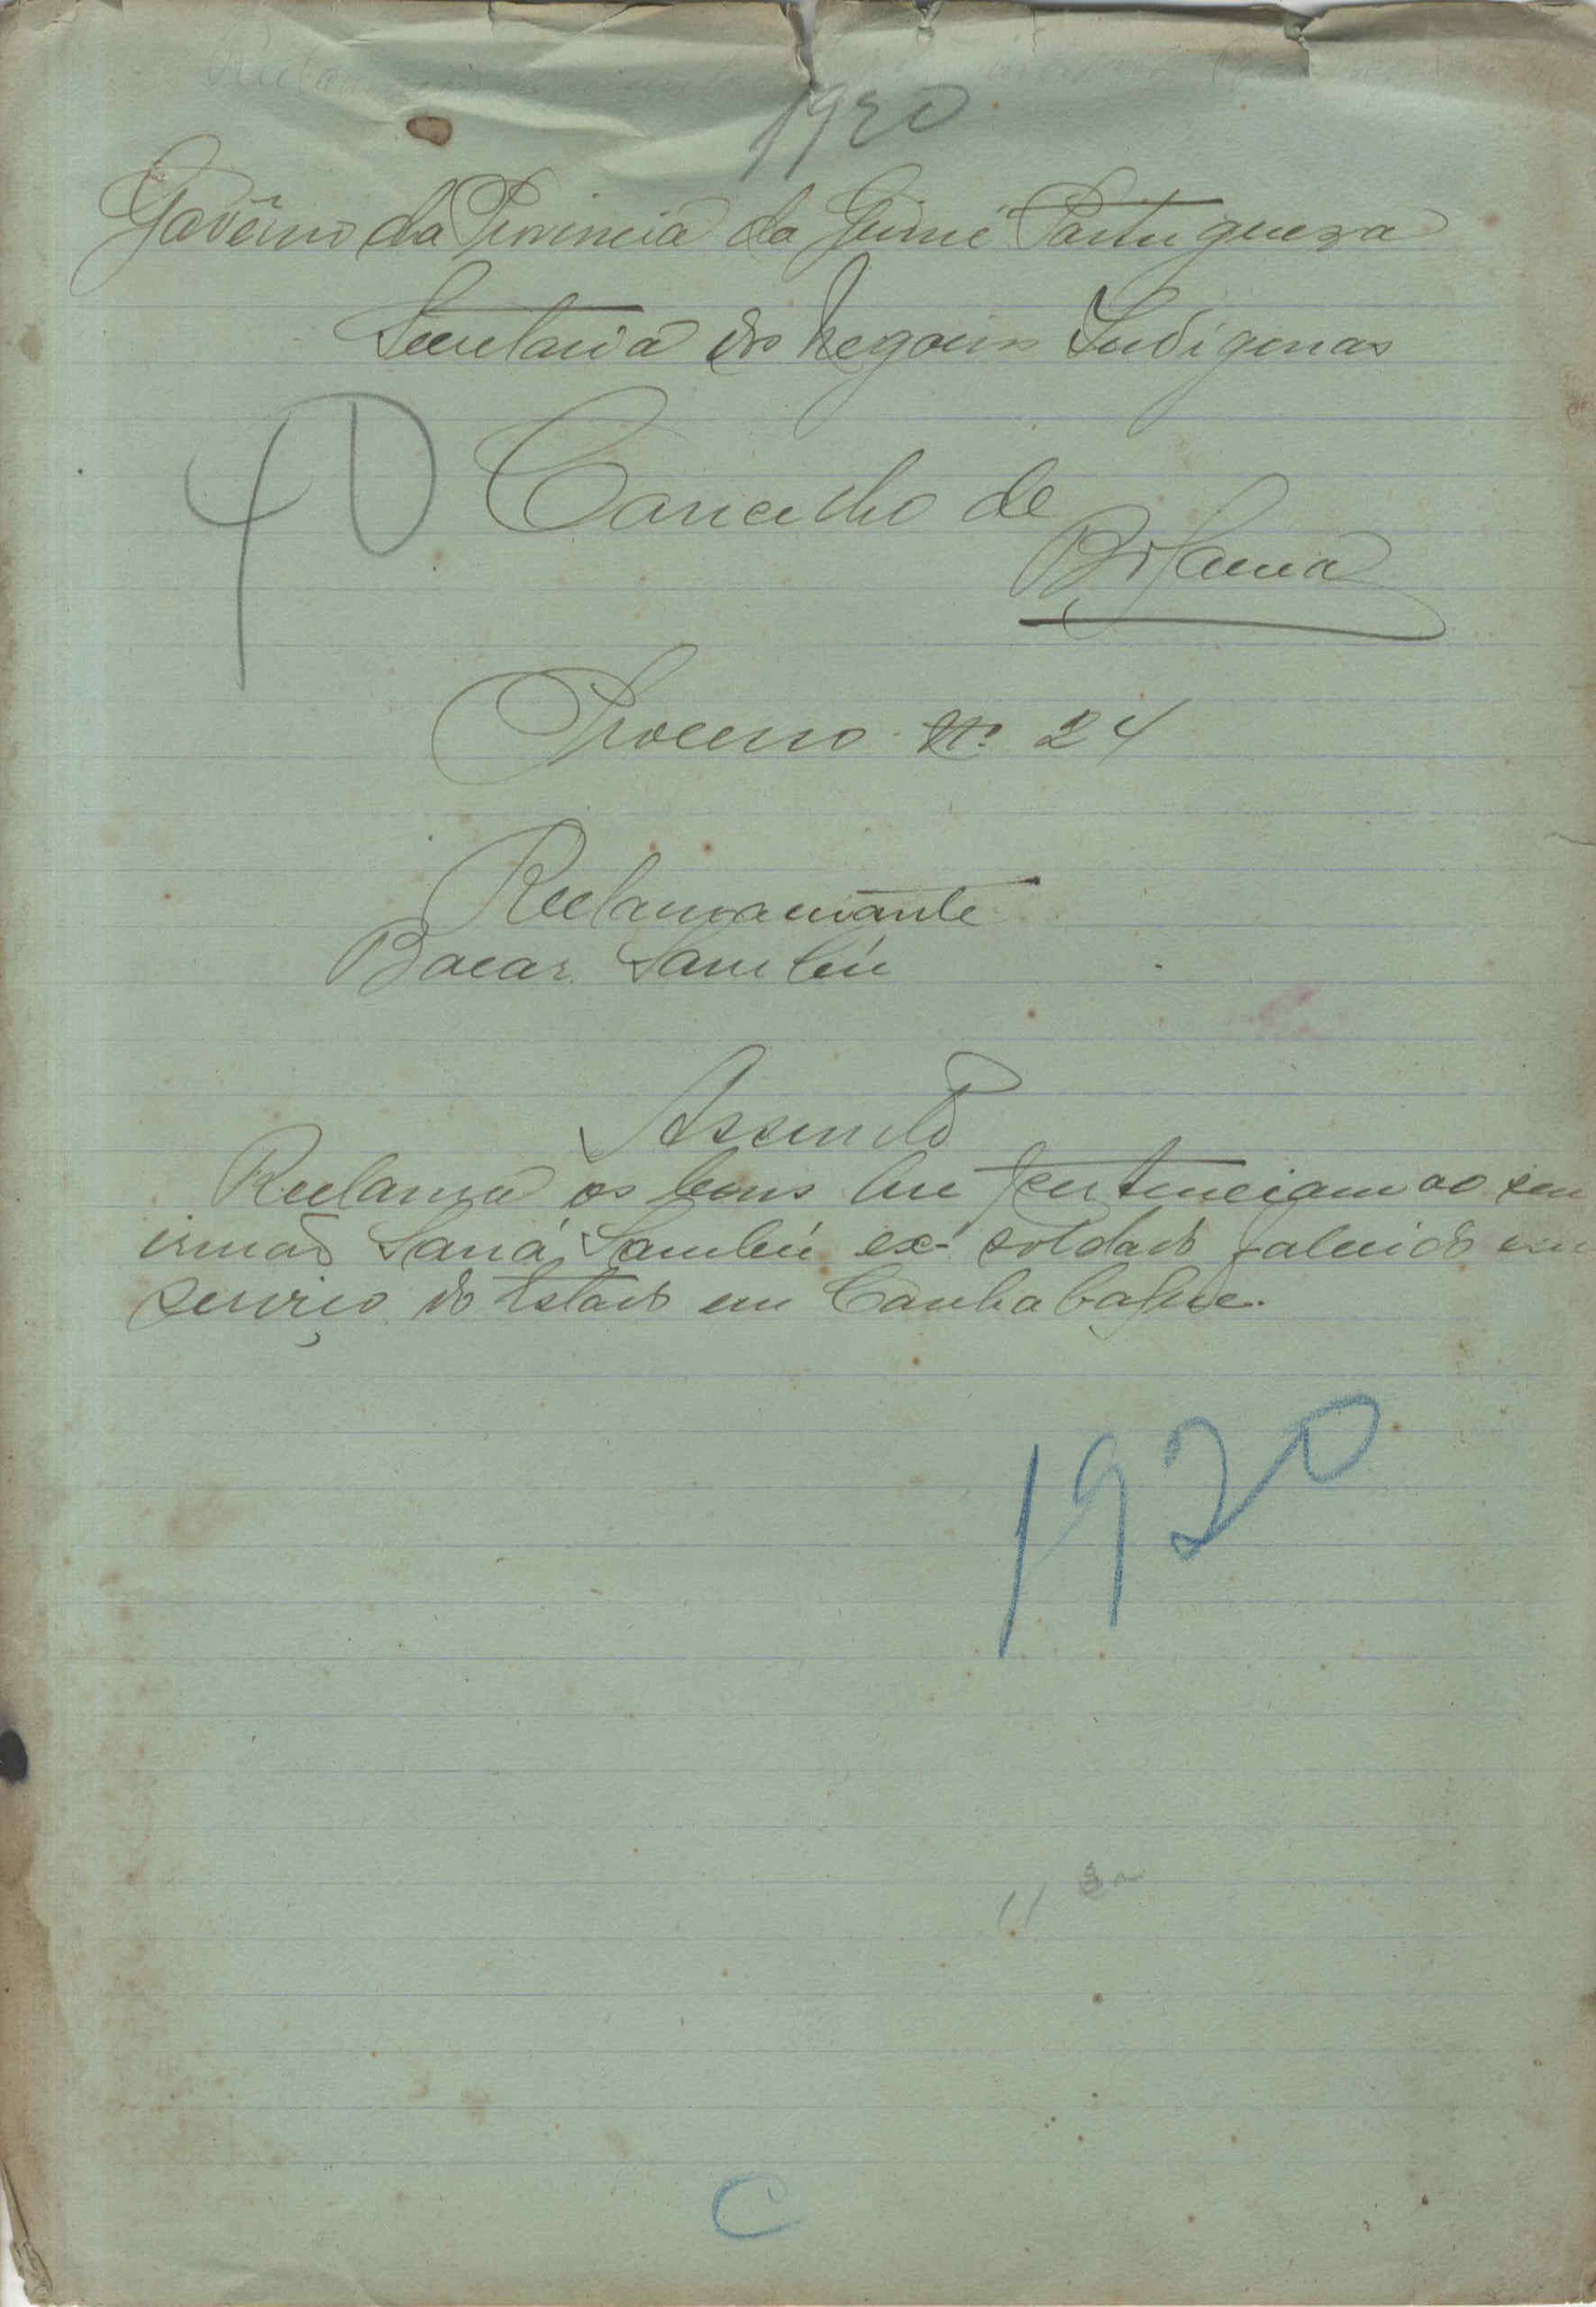 1920
Govêrno da Provincia da Guiné Portugueza
Secretaria dos Negocios Indigenas
40
Concelho de
Bolama
Processo Nº 24
Reclamamante
Bacar Sambú
Assunto
Reclama os bens que pertenciam ao seu
irmão Saná Sambú ex-soldado falecido em
serviço do Estado em Canhabaque.
1920
11
C